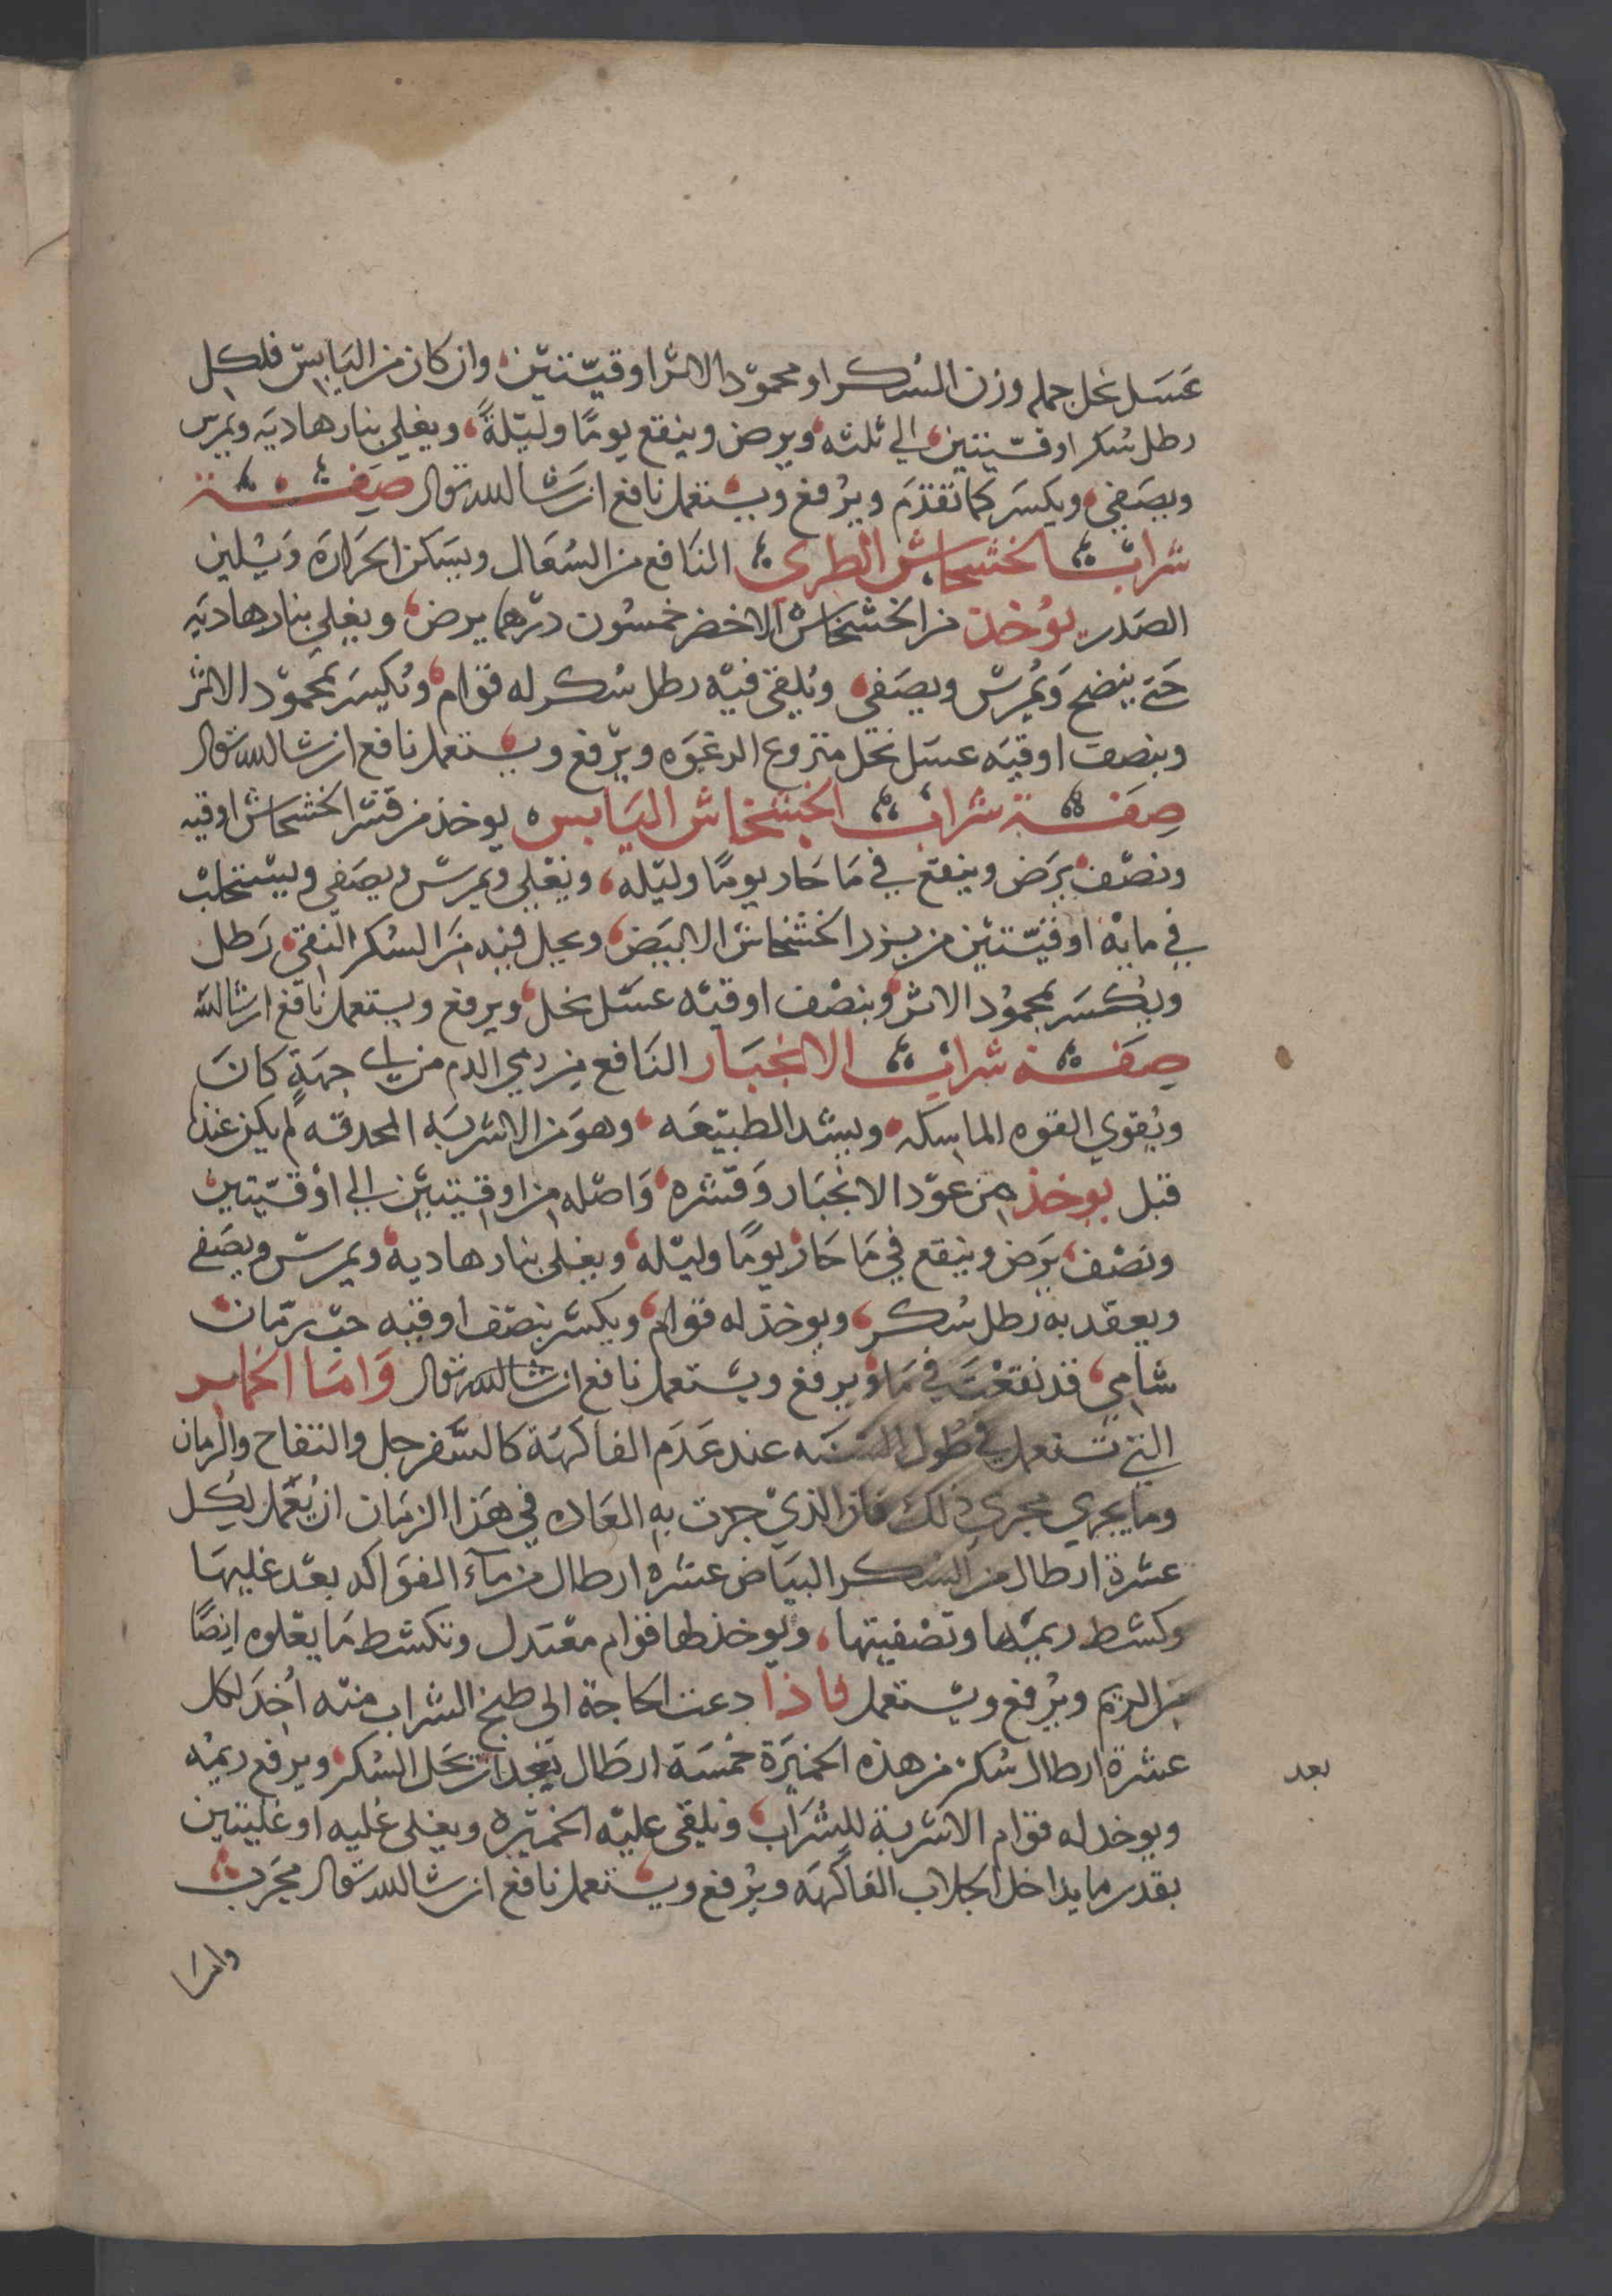 عسَل نحل جمله وزن السُكر او محموّد الاثر اوقيّتيْن، وان كان من اليَابِسْ فلكل
رطل سُكر اوقيّتين، الي ثلثه، ويرض وينقع يومًا وليْلةً، ويغلي بنار هاديَه ويمرس
ويصَفي، ويكسَر كما تقدّم ويرْفع ويسْتعمل نافع ان شا الله تعالى صِفة
شراب الخشخاش الطري النَافع من السُعَال ويسَكن الحَرارَة ويُلين
الصَدر يوُخذ من الخشخَاش الاخضر خمسُون درهما يرض، ويغلي بنار هاديَه
حَتى ينضج وَيُمرسْ ويصَفي، ويُلقى فيْه رطل سُكر له قوَام، وتُكيسَر بمحموّد الاثر
وبنصف اوقيَه عسَل نحْل منزوع الرغوَه ويرْفع ويسْتعمل نافع ان شا الله تعالى
صِفَة شراب الخشخاش اليَابس يوخذ من قشر الخشخاش اوقيه
ونصْف يرَض وينقع في مَا حَار يومًا وليْله، ويَغْلي ويمرسْ ويصَفي ويسْتحلبْ
في مايه اوقيّتيْن من بزر الخشخاش الابيَض، ويحل فيه من السُكر النقى، رَطل
ويُكسَر بمحموُد الاثر وبنصْف اوقيّه عسَل نحل، ويرفع ويستعمل نافع ان شا الله
صِفَة شراب الانجبَار النَافع من رمي الدم من اي جهَةٍ كانَ
ويُقوي القوه الماسِكه، ويسُد الطبيْعَه، وهوَ من الاشربَه المحدثه لم يكن عندنا
قبل يوخذ من عوّد الانجبَار وَقشره، وَاصْله من اوقيتيْن الى اوْقيّتين
ونصْف، يرَض وينقع في مَا حَار يومًا وليْله، ويغلى بنار هاديه، ويمرسْ ويصَفى
ويعقد به رطل سُكر، ويوخذ له قوام، ويكسر بنصْف اوقيه حبّ رمّان
شامي، قد نقعْت في مَا، ويرفع ويسْتعمل نافع ان شا الله تعالى وَامَا الخماير
التي تستعمل في طُول السَنَه عند عَدَم الفاكهَة كالسَّفرجل والتفاح والرمان
وما يجري مجرى ذلك فان الذيْ جرت به العَاده في هَذا الزمَان ان يُعْمل لكل
عشرة ارطال من السُكر البيَاض عشره ارطال من مآء الفوَاكه بعْد غليهَا
وكشط ريمهَا وتصْفيتها، ويوخذ لها قوام معْتدل وتكشط مَا يعْلوه ايضًا
من الريم ويرْفع ويسْتعمل فاذا دعت الحاجة الى طبخ الشراب منْه اُخذَ لكل
عشرة ارطال سُكر من هذه الخميْرَة خمسَة ارطَال بَعْد ان يحَل السُكر، ويرفع ريمُه
ويوخد له قوام الاشربة للشُرَاب، وتلقى عليْه الخميْره ويغلى غليه او غليتين
بقدر ما يداخل الجلاب الفاكهَه ويرْفع ويسْتعمل نافع ان شا الله تعالى مجرَب
بعد
وامرا